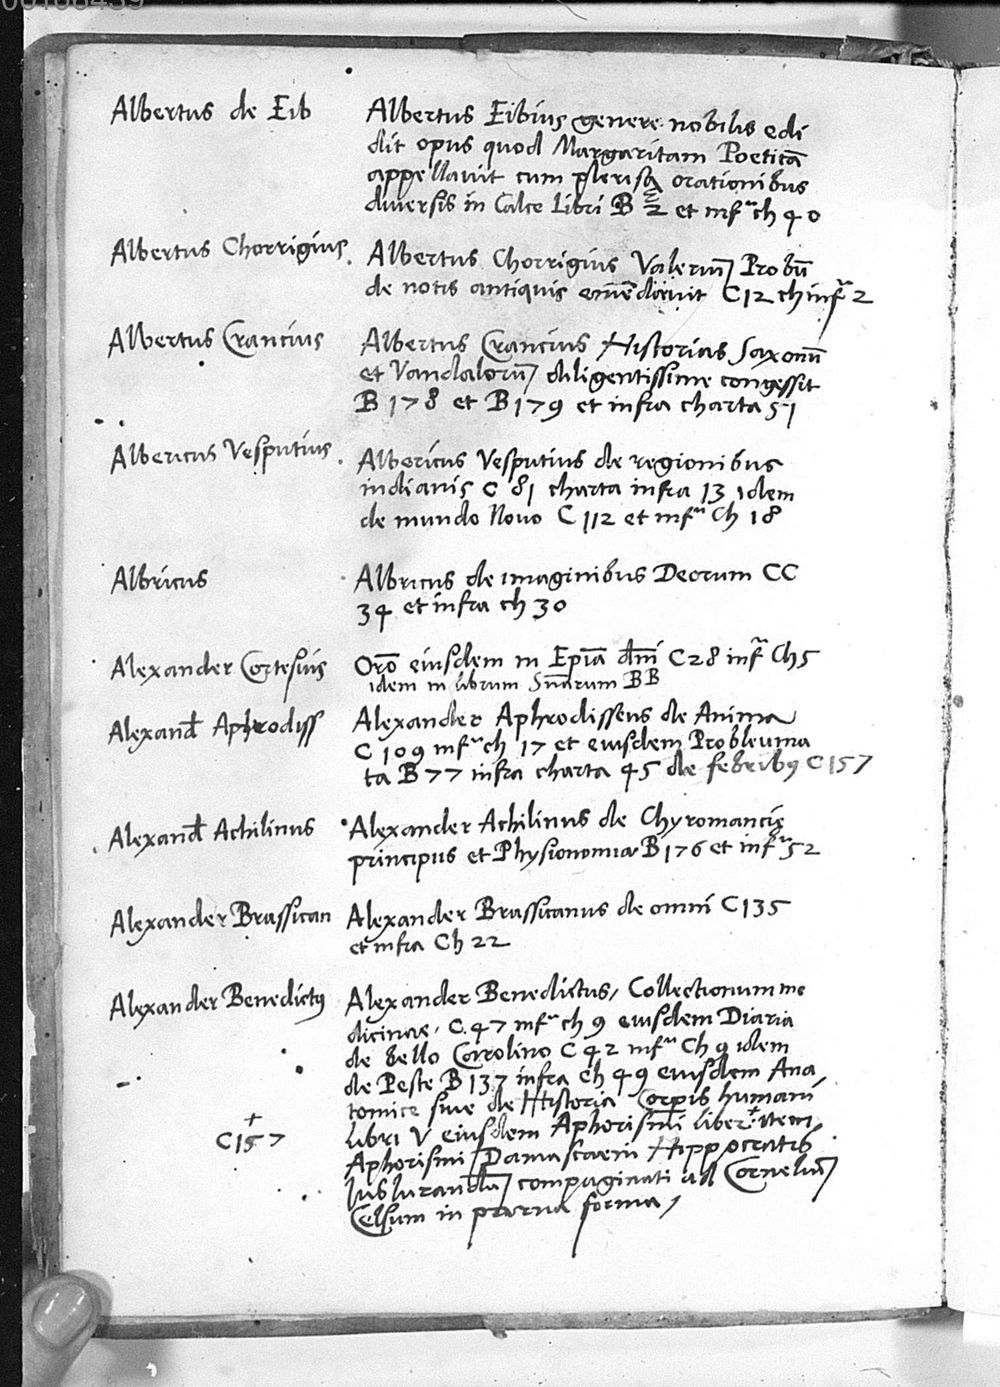 00168439
Albertus de Eib
Albertus Eibius genere nobilis edi
dit opus quod Margaritam Poeticā
appellavit cum plerisq orationibus
diversis in Calce Libri B 2 et infᵃ ch 40
Albertus Chorrigius
Albertus Chorrigius Valeriū Probū
de notis antiquis emēdavit C12 ch infᵃ 2
Albertus Crancius
Albertus Crancius Historias Saxonū
et Vandalorū diligentissime congessit
B 178 et B179 et infra charta 51
Albericus Vesputius
Albericus Vesputius de regionibus
indianis C 81 charta infra 13 idem
de mundo Novo C 112 et infᵃ Ch 18
Albricus
Albricus de imaginibus Deorum CC
34 et infra ch 30
Alexander Cortesius
Orō eiusdem in Epiā dn̄i C28 infᵃ Ch5
idem in librum Sn̄iarum BB
Alexand Aphrodiss
Alexander Aphrodisseus de Anima
C 109 infᵃ ch 17 et eiusdem Probleuma
ta B 77 infra charta 45 de febribꝰ C157
Alexand Achilinus
Alexander Achilinus de Chyromancię
principus et Physionomia B176 et infᵃ 52
Alexander Brassican
Alexander Brassicanus de omni C135
et infra Ch 22
Alexander Benedictꝰ
Alexander Benedictus, Collectionum me
dicinae, C.47 infᵃ ch 9 eiusdem Diaria
de bello Carolino C 42 infᵃ Ch 9 idem
de Peste B 137 infra Ch 49 eiusdem Ana
tomice sive de Historia Corpis humani
libri V eiusdem Aphorismi liber + item
+
C157
Aphorismi Damasceni Hippocratis
Iusiurandū compaginati ad Cornelium
Celsum in parva forma,